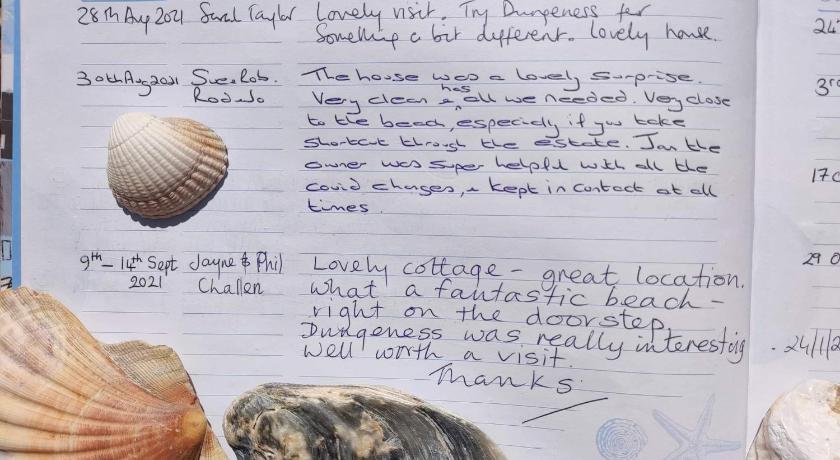 28th Aug 2021 Sarah Taylor Lovely visit. Try Dungeness for
Something a bit different. lovely house.
30th Aug 2021 Sue & Rob. The house was a lovely surprise.
Very clean & has all we needed. Very close
to the beach, especially if you take
shortcut through the estate. Jan the
owner was super helpful with all the
covid changes, & kept in contact at all
times.
9th - 14th Sept Jayne & Phil Lovely cottage - great location.
2021 Challen What a fantastic beach -
right on the doorstep.
Dungeness was really interesting
well worth a visit.
Thanks.
24
3rd
17
29 O
24/1/2